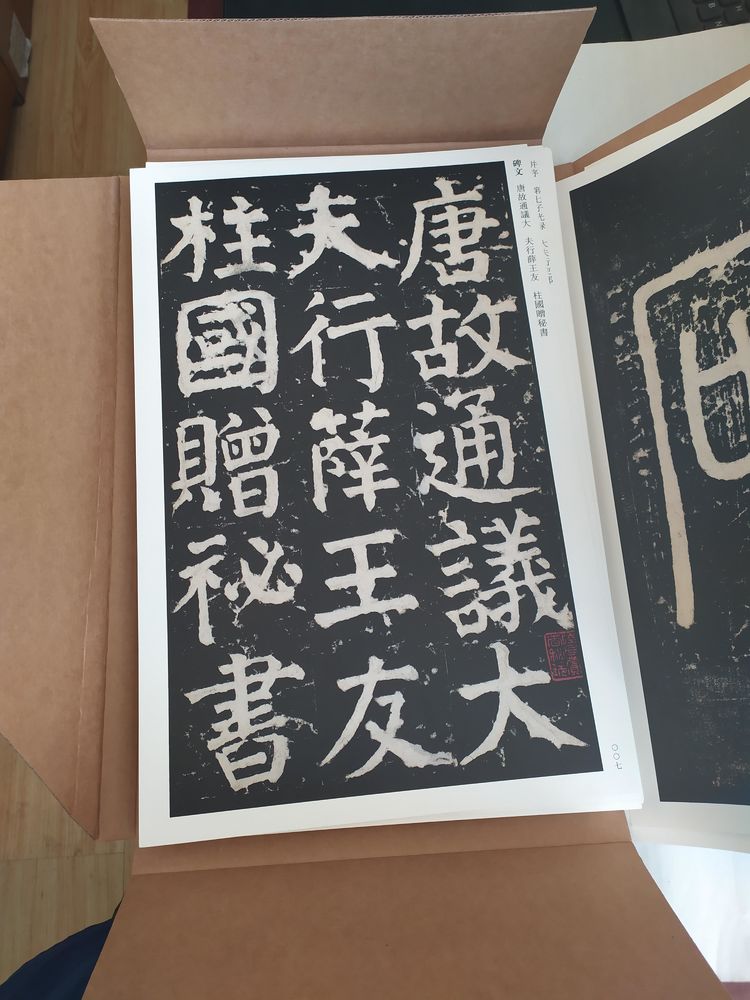 唐故通議大
夫行薛王友
柱國贈秘書
碑文 唐故通議大 夫行薛王友 柱國贈秘書
〇〇七